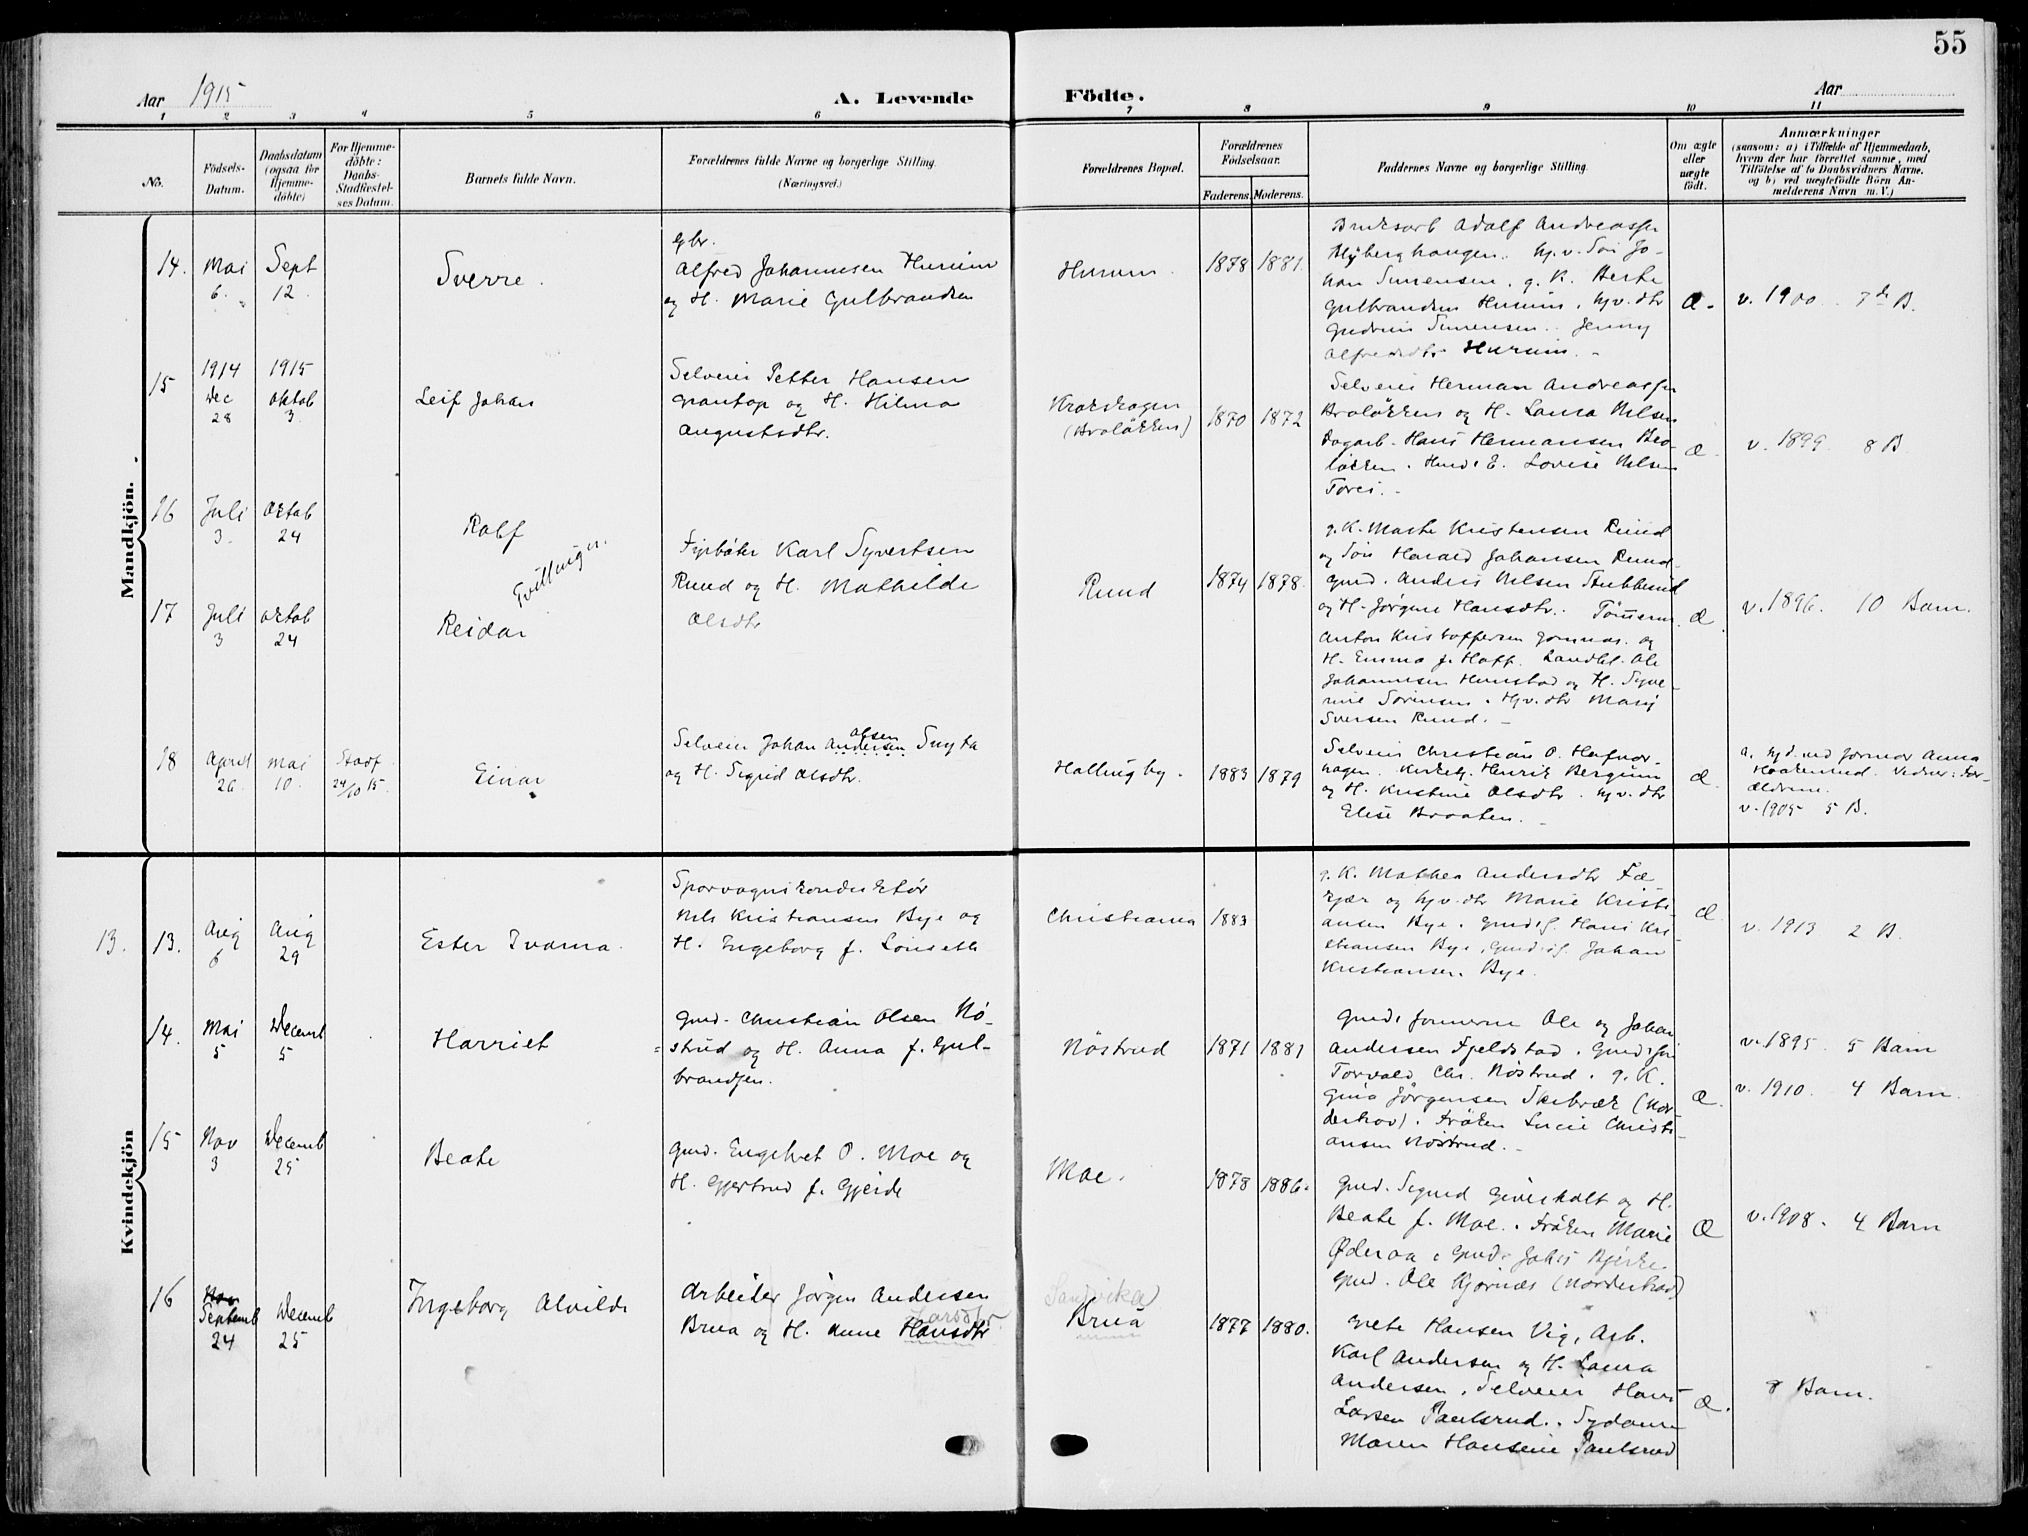 55
Aar 1915
A. Levende Födte.
Aar
1 2 3 4 5 6 7 8 9 10 11
No.
Födsels-Datum.
Daabsdatum (ogsaa for Hjemme-döbte)
For Hjemme-döbte: Daabs-Stadfæstel-ses Datum.
Barnets fulde Navn.
Forældrenes fulde Navne og borgerlige Stilling.
(Næringsvei.)
Forældrenes Bopæl.
Forældrenes Födselsaar.
Faderens. Moderens.
Faddernes Navne og borgerlige Stilling.
Om ægte eller uægte födt.
Anmærkninger
(saasom: a) i Tilfælde af Hjemmedaab,
hvem der har forrettet samme, med
Tilföielse af to Daabsvidners Navne.
og b) ved uægtefödte Börn An-
melderens Navn m. V.)
Mandkjön.
14. Mai 6. Sept 12. Sverre.
Gbr.
Alfred Johannesen Hurum
og H. Marie Gulbrandsen
Hurum. 1878 1881.
Bruksarb Adolf Andreassen
hougen. hj.v. Søn Jo-
han Simensen, g. K. Berte
Gulbrandsen Hurum, hj.v. dtr
Gudrun Simensen. Jenny
Alfredsdtr Hurum. -
Æ. v. 1900. 7de B.
15 1914 Dec 28 1915 Oktob 3. Leif Johan
Selveier Petter Hansen
Grantop og H. Hilma
Augustsdtr.
Krokskogen
(Braløkken) 1870 1872
Selveier Herman Andreassen
Braløkken og H. Laura Nilsen
Dagarb. Hans Hermansen Bra-
løkken. Lovise Nilsen
Æ. v. 1899. 8 B.
16 Juli 3. Oktob 24 Rolf
Tvillinger.
17 Juli 3 Oktob 24 Reidar
Fyrbøter Karl Syvertsen
Ruud og H. Mathilde
Olsdtr
Ruud 1874 1878.
g. K. Marte Kristensen Ruud
og Søn Harald Johansen Ruud
Gmd. Anders Nilsen Stubberud
og H. Jørgine Hansdtr. Tømmerm.
Anton Kristoffersen Gomnæs. og
H. Emma f. Hoff. Landh. Ole
Johannesen Hunstad og H. Syve-
rine Sørensen. Hj.v. dtr Marij
Syversen Ruud. -
Æ. v. 1896. 10 Barn.
18 April 26 Mai 10. Stadf 24/10 15. Einar
Selveier Johan Andersen Olsen Smyta
og H. Sigrid Olsdtr.
Hallingby. 1883 1879
Selveier Christian O. Hafnor-
hagen. Kirketj. Henrik Bergum
og H. Kristine Olsdtr. hj.v. dtr
Elise Braaten. -
Æ. a. hjd. ved Jormor Anna
Haakenrud. Vidner: For-
ældrene.
v. 1905 5 B.
Kvindekjön
13. 13. Aug 6 Aug 29 Ester Ivarna.
Sporvognskonduktør
Nils Kristiansen Bye og
H. Ingeborg f. Lonseth
Christiania 1883
g. K. Mathea Andersdtr Fæ-
kjær og hj.v. dtr Marie Kristi-
ansen Bye, Gmdsf. Hans Kri-
stiansen Bye, Gmdsf. Johan
Kristiansen Bye.
Æ v. 1913 2 B.
14. Mai 5 Decemb 5 Harriet
Gmd. Christian Olsen Nø-
strud og H. Anna f. Gul-
brandsen.
Nøstrud 1871 1881
Gmd sønnerne Ole og Johan
Andersen Fjeldstad. Gmds søn
Torvald Chr. Nøstrud. g. K.
Gina Jørgensen Skibræk (Nor-
derhov). Frøken Lucie Christi-
ansen Nøstrud. -
Æ. v. 1895. 5 Barn
v. 1910. 4 Barn.
15 Nov 3 Decemb 25 Beate
Gmd. Engebret O. Moe og
H. Gjertrud f. Gjeide
Moe. 1878 1886.
Gmd. Sigurd Giverholt og H.
Beate f. Moe. Frøken Marie
Øderaa. Gmd. Johs Bjerke.
Gmd. Ole Hjørnæs (Norderhov)
Æ v. 1908. 4 Barn
16 Septemb 24 Decemb 25 Ingeborg Alvilde
Arbeider Jørgen Andersen
Brua og H. Anne Hansdtr Larsdtr.
Sandvika
Brua 1877 1880.
Grete Hansen Vig, Arb.
Karl Andersen og H. Laura
Andersen, Selveier Hans
Larsen Paulsrud. Sydame
Maren Hansine Paulsrud
Æ. 8 Barn.